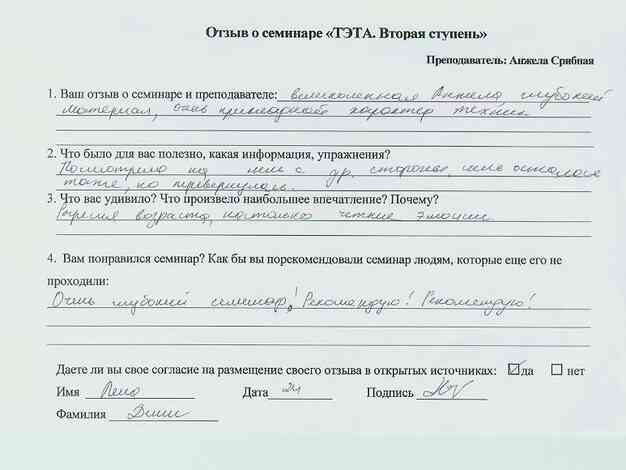 Отзыв о семинаре «ТЭТА. Вторая ступень»
Преподаватель: Анжела Срибная
1. Ваш отзыв о семинаре и преподавателе: великолепная Анжела глубокий
материал, очень прикладной характер техник.
2. Что было для вас полезно, какая информация, упражнения?
Посмотрела на с др. стороны,
также, но перевернулась.
3. Что вас удивило? Что произвело наибольшее впечатление? Почему?
возраста, настолько четкие эмоции.
4. Вам понравился семинар? Как бы вы порекомендовали семинар людям, которые еще его не
проходили:
Очень глубокий семинар! Рекомендую! Рекомендую!
Даете ли вы свое согласие на размещение своего отзыва в открытых источниках: да нет
Имя Лена Дата 24 Подпись
Фамилия